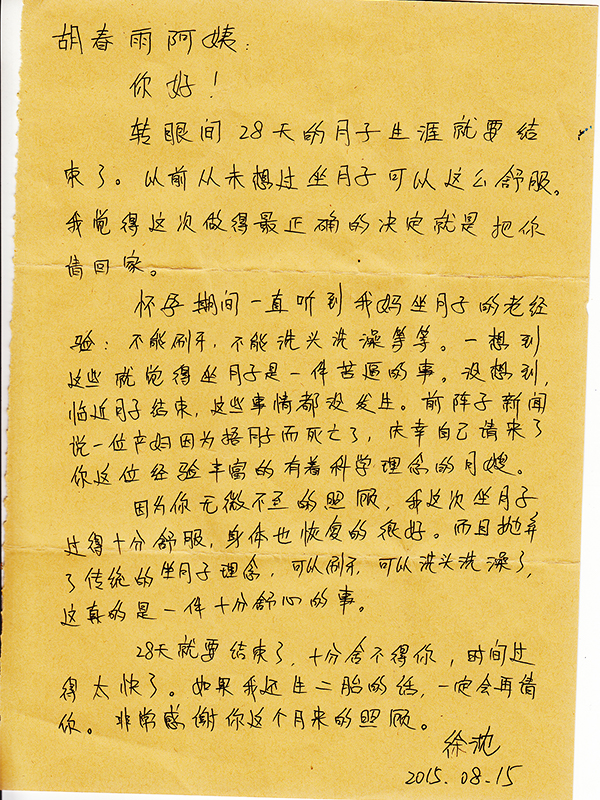 胡春雨阿姨：
你好！
转眼间28天的月子生涯就要结
束了。以前从未想过坐月子可以这么舒服。
我觉得这次做得最正确的决定就是把你
请回家。
怀孕期间一直听到我妈坐月子的老经
验：不能刷牙，不能洗头洗澡等等。一想到
这些就觉得坐月子是一件苦逼的事。没想到，
临近月子结束，这些事情都没发生。前阵子新闻
说一位产妇因为捂月子而死亡了，庆幸自己请来了
你这位经验丰富的有着科学理念的月嫂。
因为你无微不至的照顾，我这次坐月子
过得十分舒服，身体也恢复的很好。而且抛弃
了传统的坐月子理念，可以刷牙，可以洗头洗澡了，
这真的是一件十分舒心的事。
28天就要结束了，十分舍不得你，时间过
得太快了。如果我还生二胎的话，一定会再请
你。非常感谢你这个月来的照顾。
徐
2015.08.15